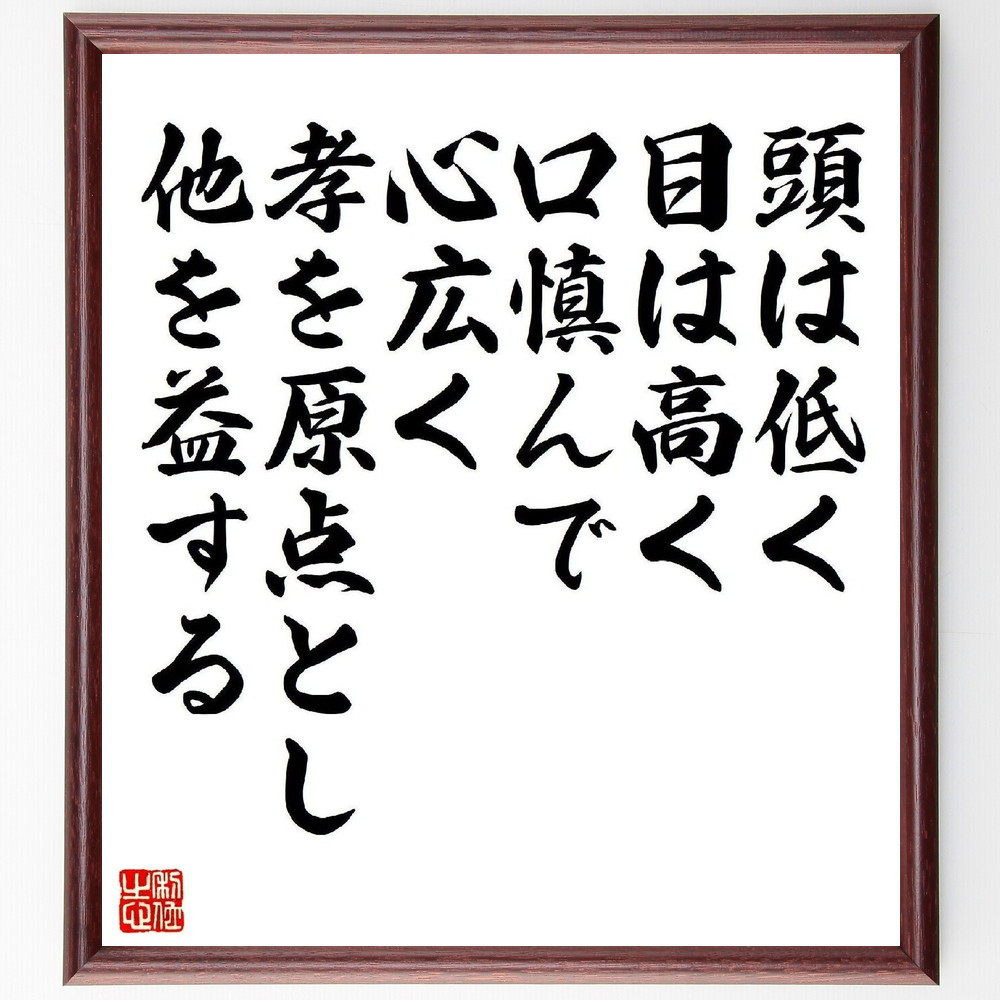 頭は低く
目は高く
口慎んで
心広く
孝を原点とし
他を益する